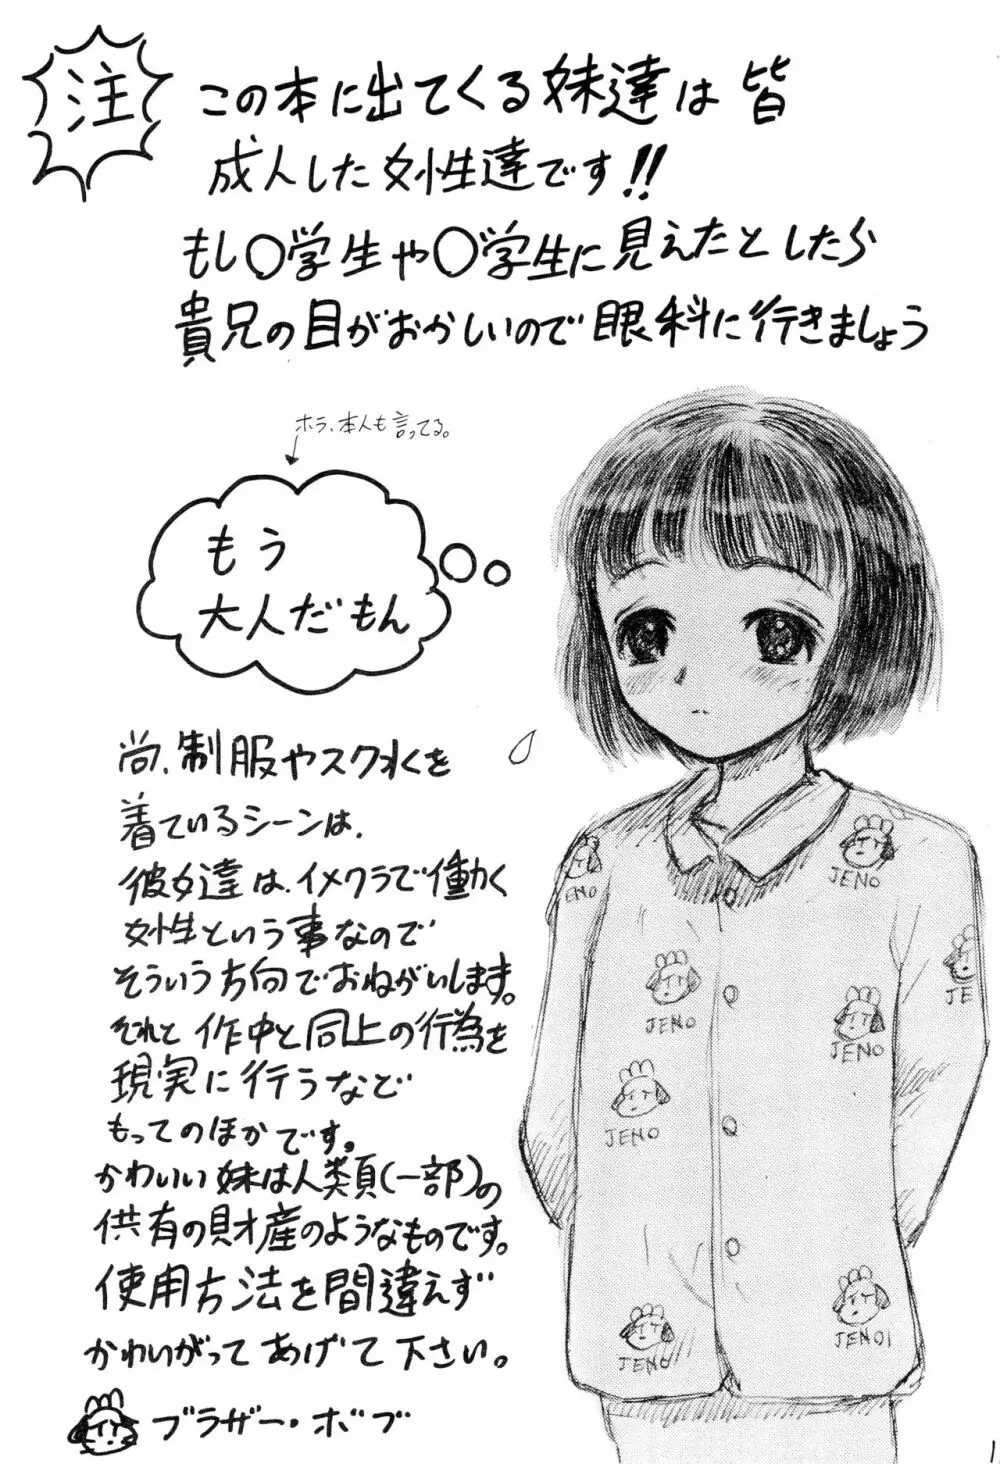 注
この本に出てくる妹達は皆
成人した女性達です!!
もし〇学生や〇学生に見えたとしたら
貴兄の目がおかしいので眼科に行きましょう
ホラ、本人も言ってる。
もう
大人だもん
尚、制服やスク水を
着ているシーンは、
彼女達は、イメクラで働く
女性という事なので
そういう方向でおねがいします。
それと作中と同上の行為を
現実に行うなど
もってのほかです。
かわいい妹は人類(一部)の
共有の財産のようなものです。
使用方法を間違えず
かわいがってあげて下さい。
ブラザー・ボブ
JENO
ENO
JE
JENO
JENO
JENO
JENO
JENOI
1